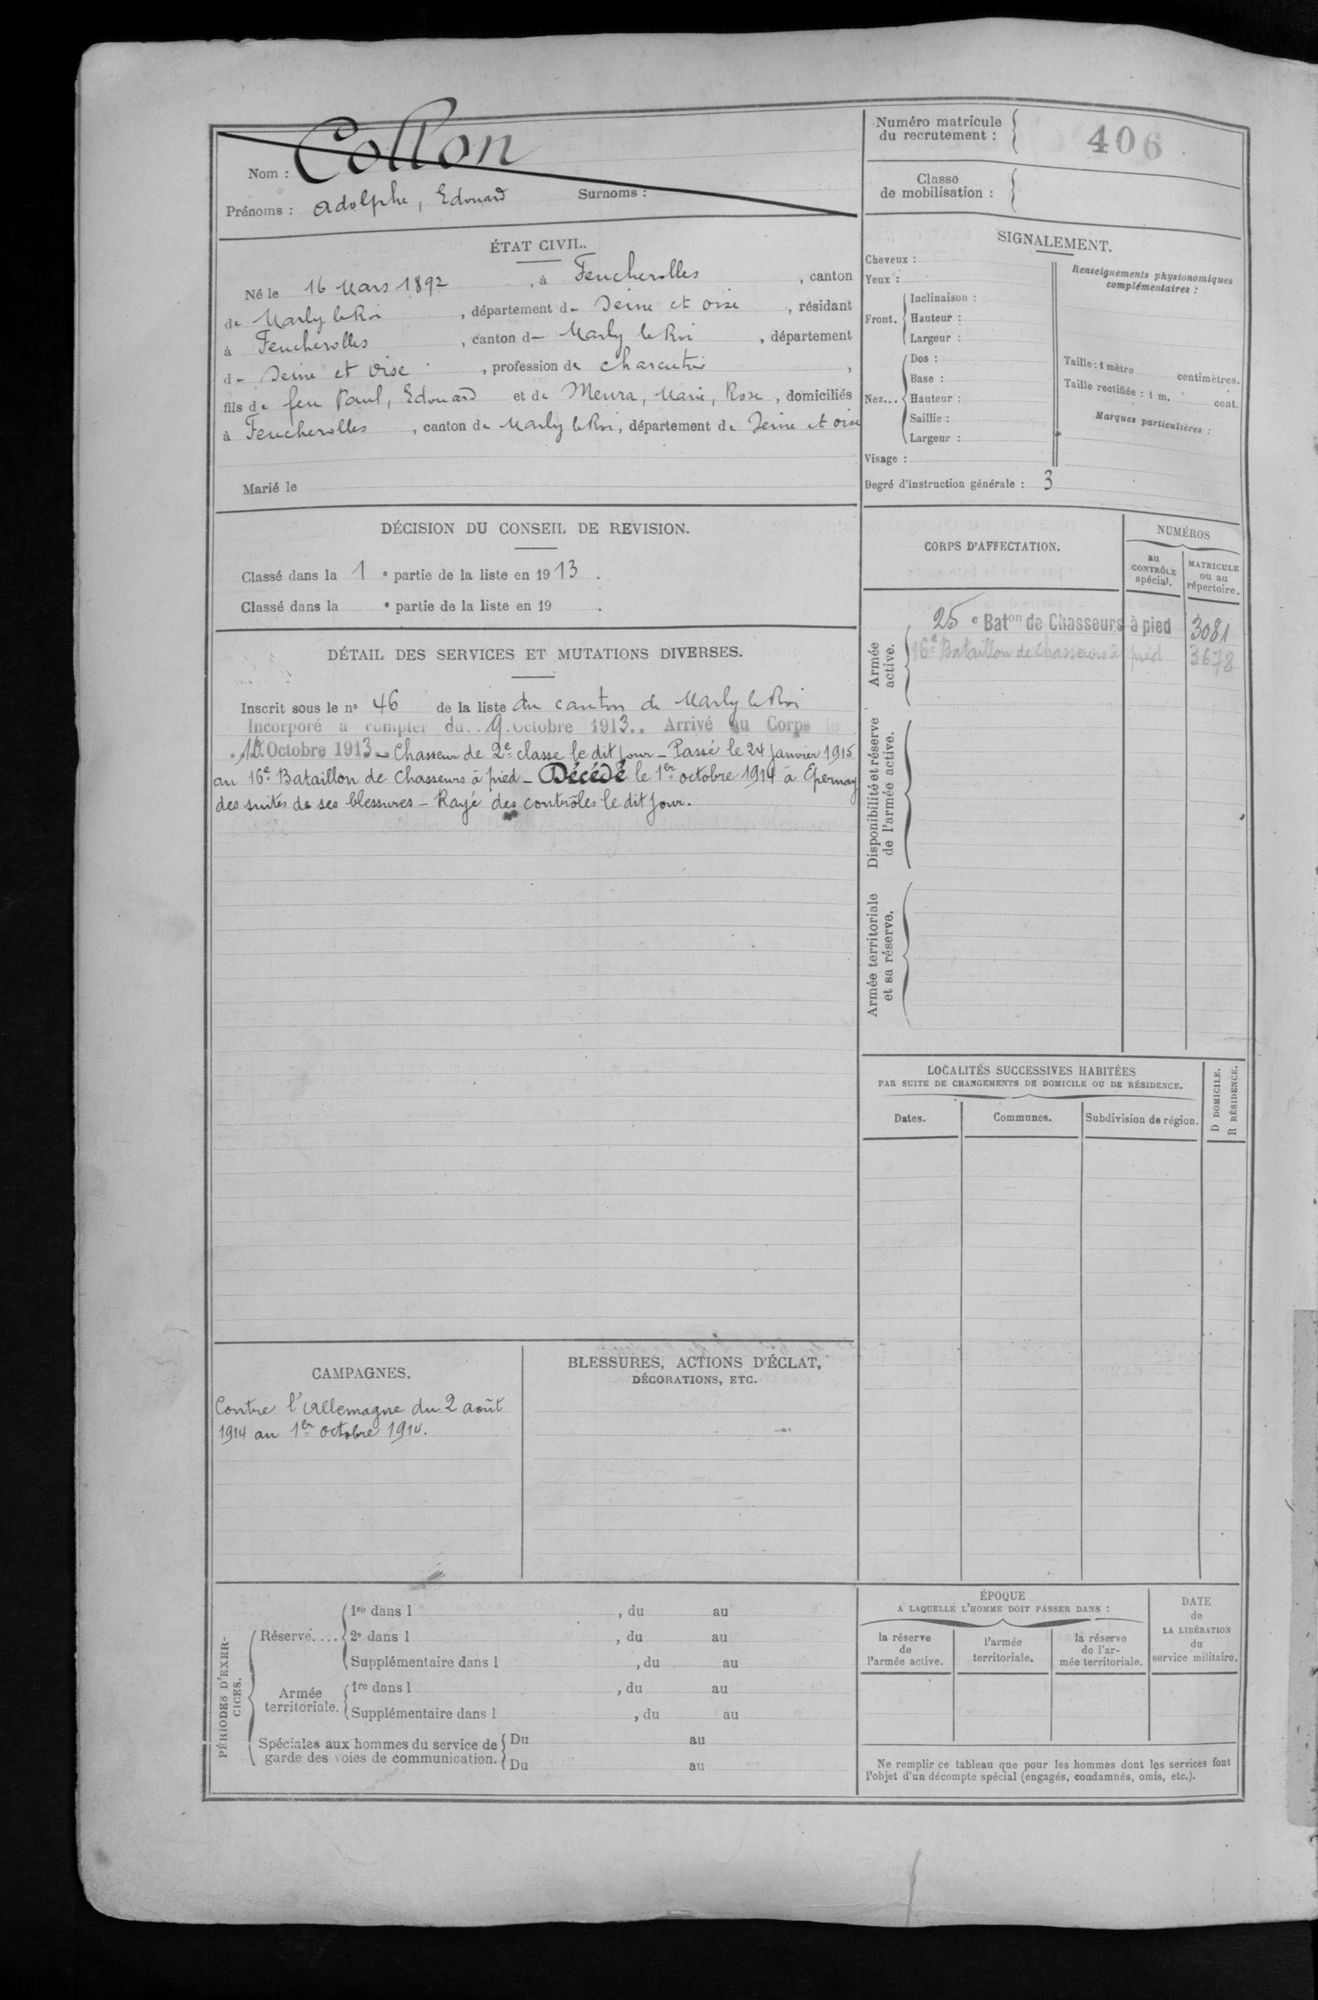 Nom : Collon
Prénoms : Adolphe, Edouard Surnoms :
Numéro matricule du recrutement : 406
Classe de mobilisation :
ÉTAT CIVIL.
Né le 16 Mars 1892, à Feucherolles, canton
de Marly le Roi, département de Seine et Oise, résidant
à Feucherolles, canton de Marly le Roi, département
de Seine et Oise, profession de charcutier,
fils de feu Paul, Edouard et de Meura, Marie, Rose, domiciliés
à Feucherolles, canton de Marly le Roi, département de Seine et oise
Marié le
SIGNALEMENT.
Cheveux :
Yeux :
Front. Inclinaison :
Hauteur :
Largeur :
Nez... Dos :
Base :
Hauteur :
Saillie :
Largeur :
Visage :
Renseignements physionomiques
complémentaires :
Taille : 1 mètre centimètres.
Taille rectifiée : 1 m. cent.
Marques particulières :
Degré d'instruction générale : 3
DÉCISION DU CONSEIL DE REVISION.
Classé dans la 1e partie de la liste en 1913.
Classé dans la e partie de la liste en 19 .
DÉTAIL DES SERVICES ET MUTATIONS DIVERSES.
Inscrit sous le no 46 de la liste du canton de Marly le Roi
Incorporé à compter du 9 Octobre 1913. Arrivé au Corps le
10 Octobre 1913 - Chasseur de 2e classe le dit jour - Passé le 24 janvier 1915
au 16e Bataillon de Chasseurs à pied - Décédé le 1er octobre 1914 à Epernay
des suites de ses blessures - Rayé des contrôles le dit jour.
CORPS D'AFFECTATION.
NUMÉROS
au CONTRÔLE spécial.
MATRICULE ou au répertoire.
Armée active.
25e Baton de Chasseurs à pied 3081
16e Bataillon de Chasseurs à pied 3678
Disponibilité et réserve de l'armée active.
Armée territoriale et sa réserve.
LOCALITÉS SUCCESSIVES HABITÉES
PAR SUITE DE CHANGEMENTS DE DOMICILE OU DE RÉSIDENCE.
D DOMICILE.
R RÉSIDENCE.
Dates. Communes. Subdivision de région.
CAMPAGNES.
Contre l'Allemagne du 2 août
1914 au 1er octobre 1914.
BLESSURES, ACTIONS D'ÉCLAT,
DÉCORATIONS, ETC.
PÉRIODES D'EXERCICES.
Réserve.... 1re dans l , du au
2e dans l , du au
Supplémentaire dans l , du au
Armée territoriale. 1re dans l , du au
Supplémentaire dans l , du au
Spéciales aux hommes du service de Du au
garde des voies de communication. Du au
ÉPOQUE
A LAQUELLE L'HOMME DOIT PASSER DANS :
la réserve de l'armée active.
l'armée territoriale.
la réserve de l'armée territoriale.
DATE de LA LIBÉRATION du service militaire.
Ne remplir ce tableau que pour les hommes dont les services font
l'objet d'un décompte spécial (engagés, condamnés, omis, etc.).